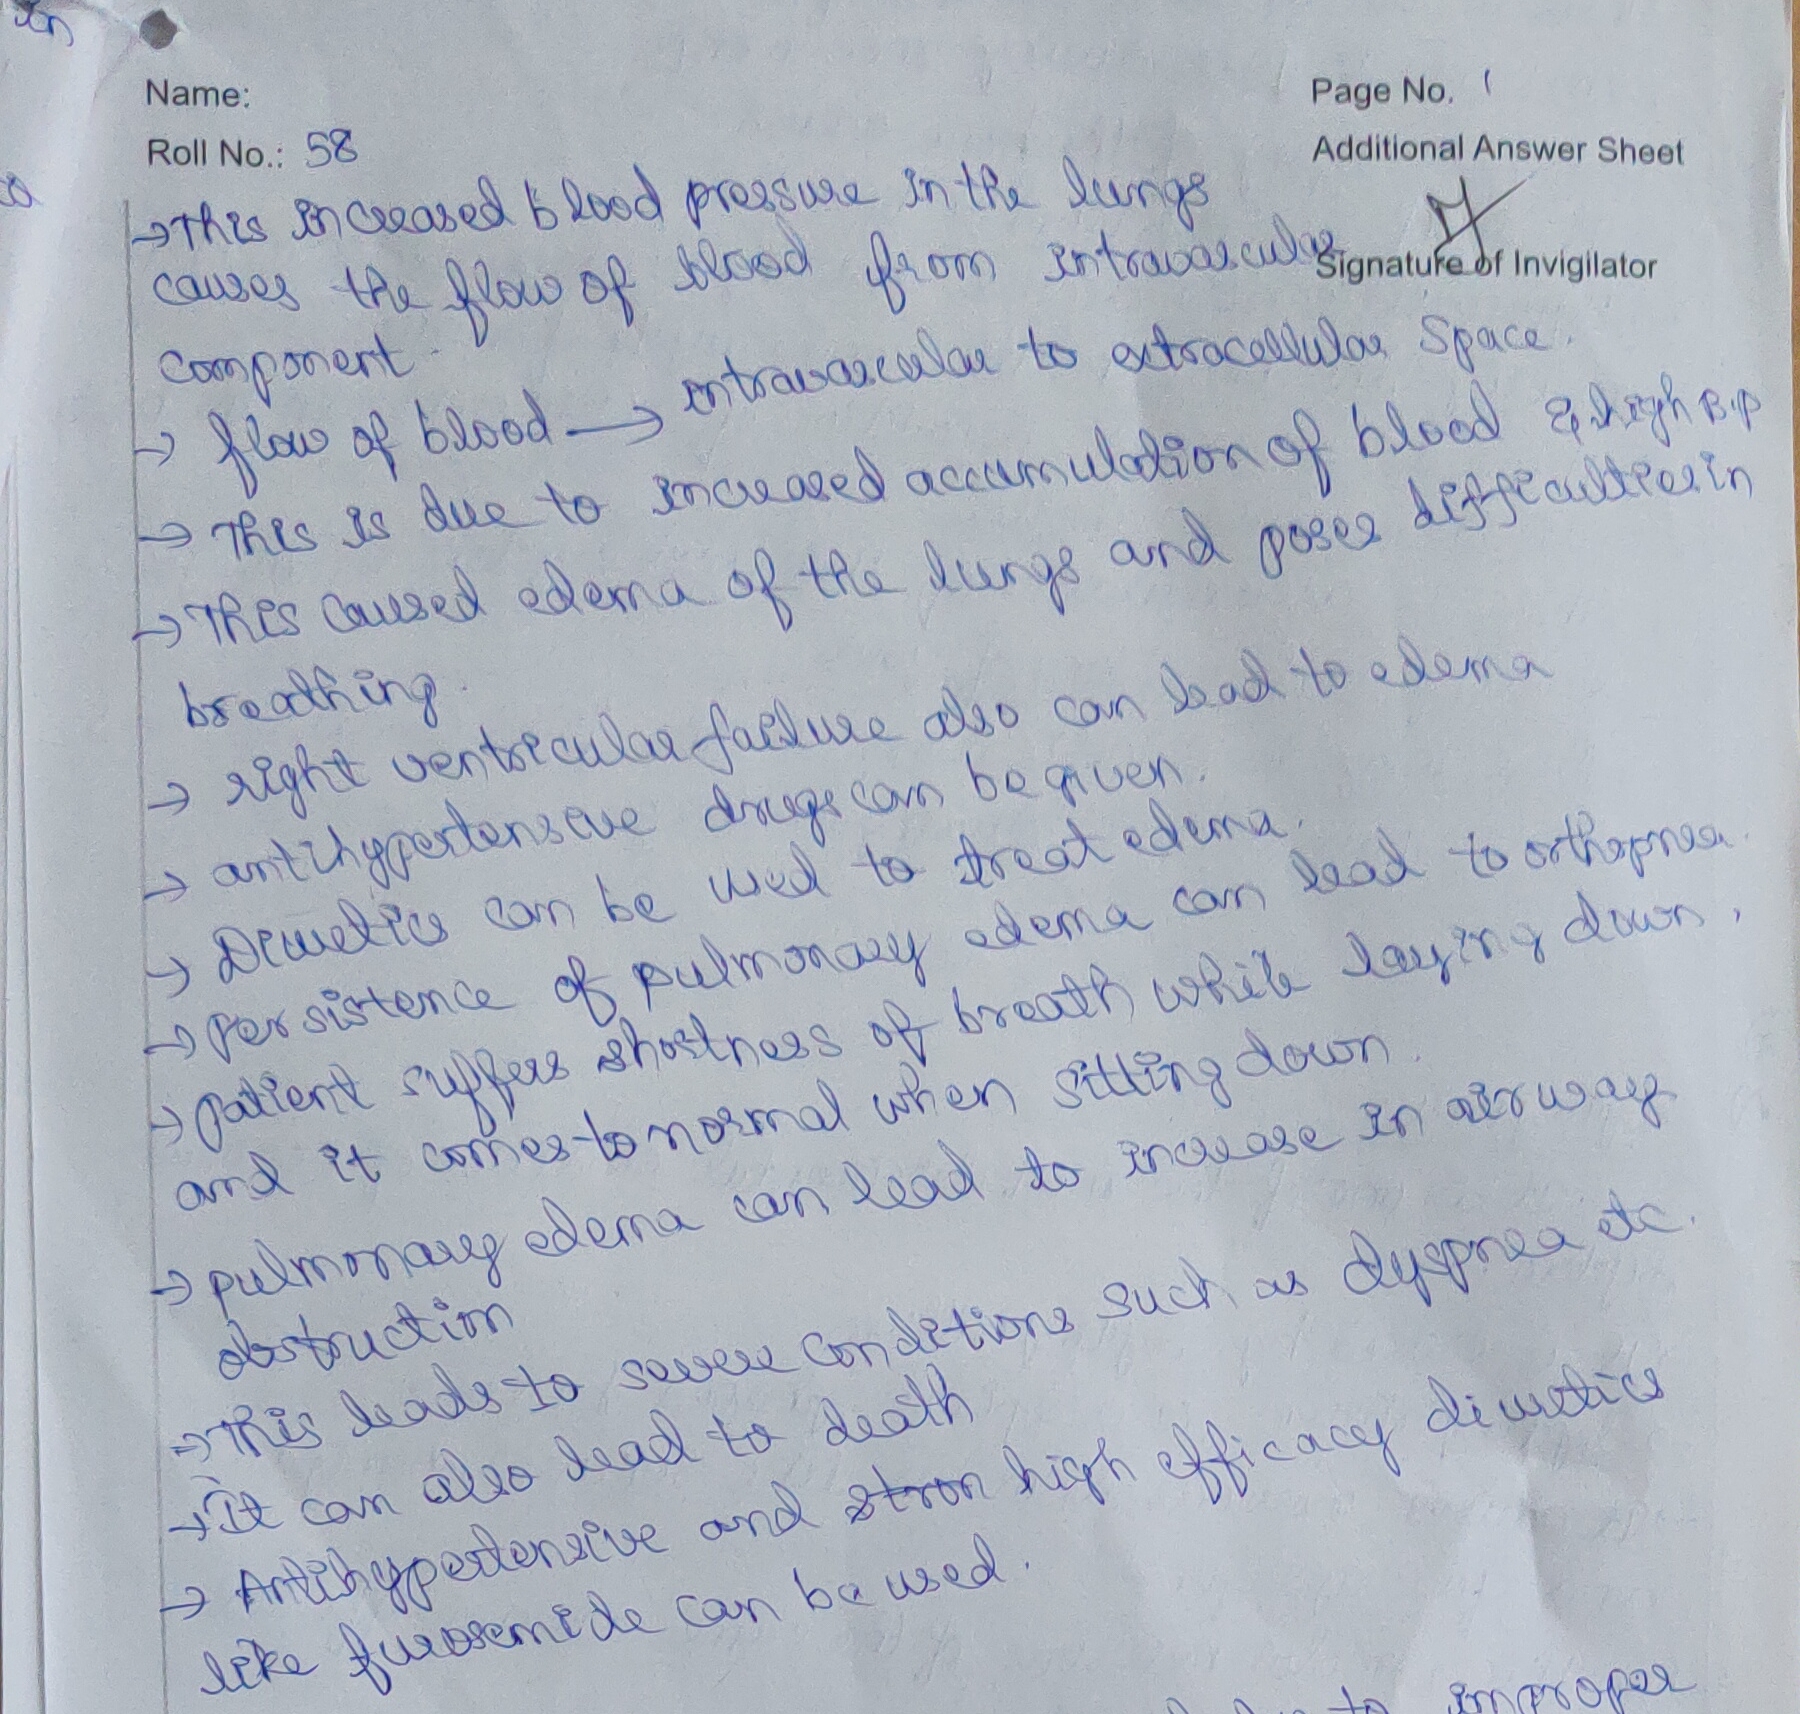 in
Name:
Page No. 1
Roll No.: 58
Additional Answer Sheet
Signature of Invigilator
→ This increased blood pressure in the lungs
causes the flow of blood from intravascular
component.
→ flow of blood → intravascular to extracellular space.
→ This is due to increased accumulation of blood & high B.P
→ This caused edema of the lungs and poses difficulties in
breathing.
→ right ventricular failure also can lead to edema
→ antihypertensive drugs can be given.
→ Diuretics can be used to treat edema.
→ persistence of pulmonary edema can lead to orthopnea.
→ patient suffers shortness of breath while laying down,
and it comes to normal when sitting down.
→ pulmonary edema can lead to increase in airway
obstruction
→ This leads to severe conditions such as dyspnea etc.
→ It can also lead to death
→ Antihypertensive and stron high efficacy diuretics
like furosemide can be used.
to improper